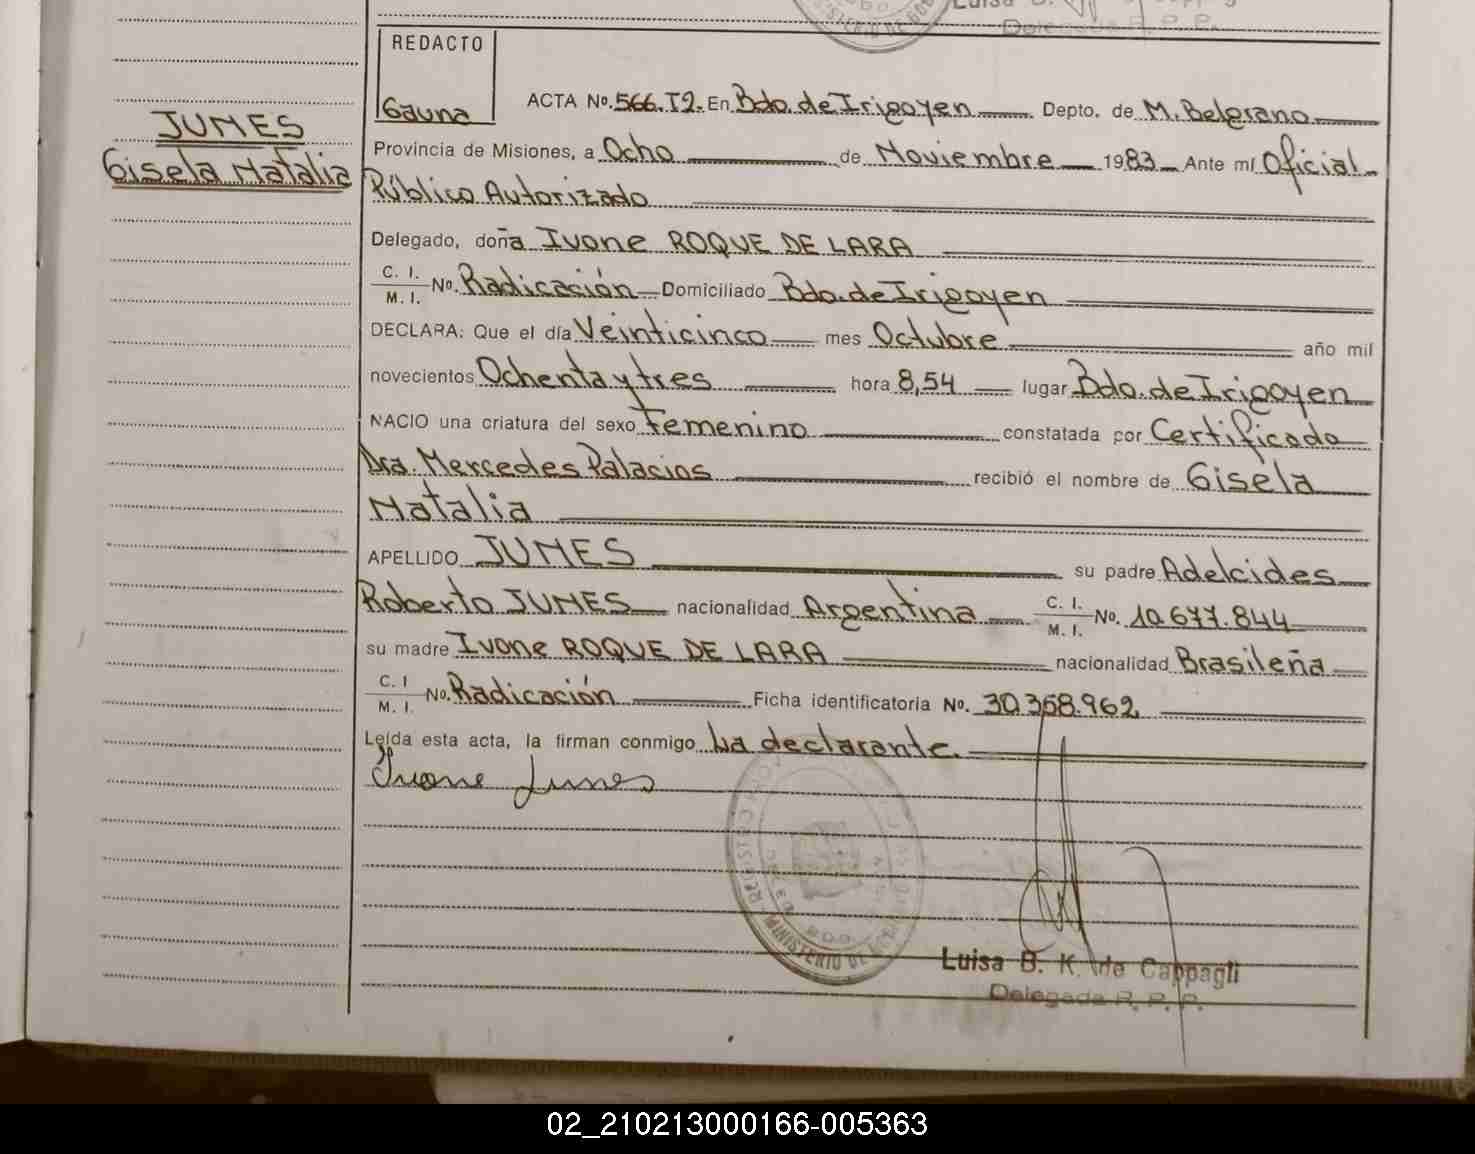 Luisa B.
Delegada R. P. P.
REDACTO
Gauna
ACTA No. 566. T2. En Bdo. de Irigoyen Depto. de M. Belgrano
JUNES
Gisela Natalia
Provincia de Misiones, a Ocho de Noviembre 1983 Ante mí Oficial
Público Autorizado
Delegado, doña Ivone ROQUE DE LARA
C. I.
M. I. No. Radicación Domiciliado Bdo. de Irigoyen
DECLARA: Que el día Veinticinco mes Octubre año mil
novecientos Ochenta y tres hora 8,54 lugar Bdo. de Irigoyen
NACIO una criatura del sexo Femenino constatada por Certificado
Dra. Mercedes Palacios recibió el nombre de Gisela
Natalia
APELLIDO JUNES su padre Adelcides
Roberto JUNES nacionalidad Argentina C. I. M. I. No. 10.677.844
su madre Ivone ROQUE DE LARA nacionalidad Brasileña
C. I
M. I. No. Radicación Ficha identificatoria No. 30.358.962
Leída esta acta, la firman conmigo La declarante.
Ivone Junes
REGISTRO PROV
MINISTERIO DE
Luisa B. K. de Cappagli
Delegada R. P. P.
02_210213000166-005363